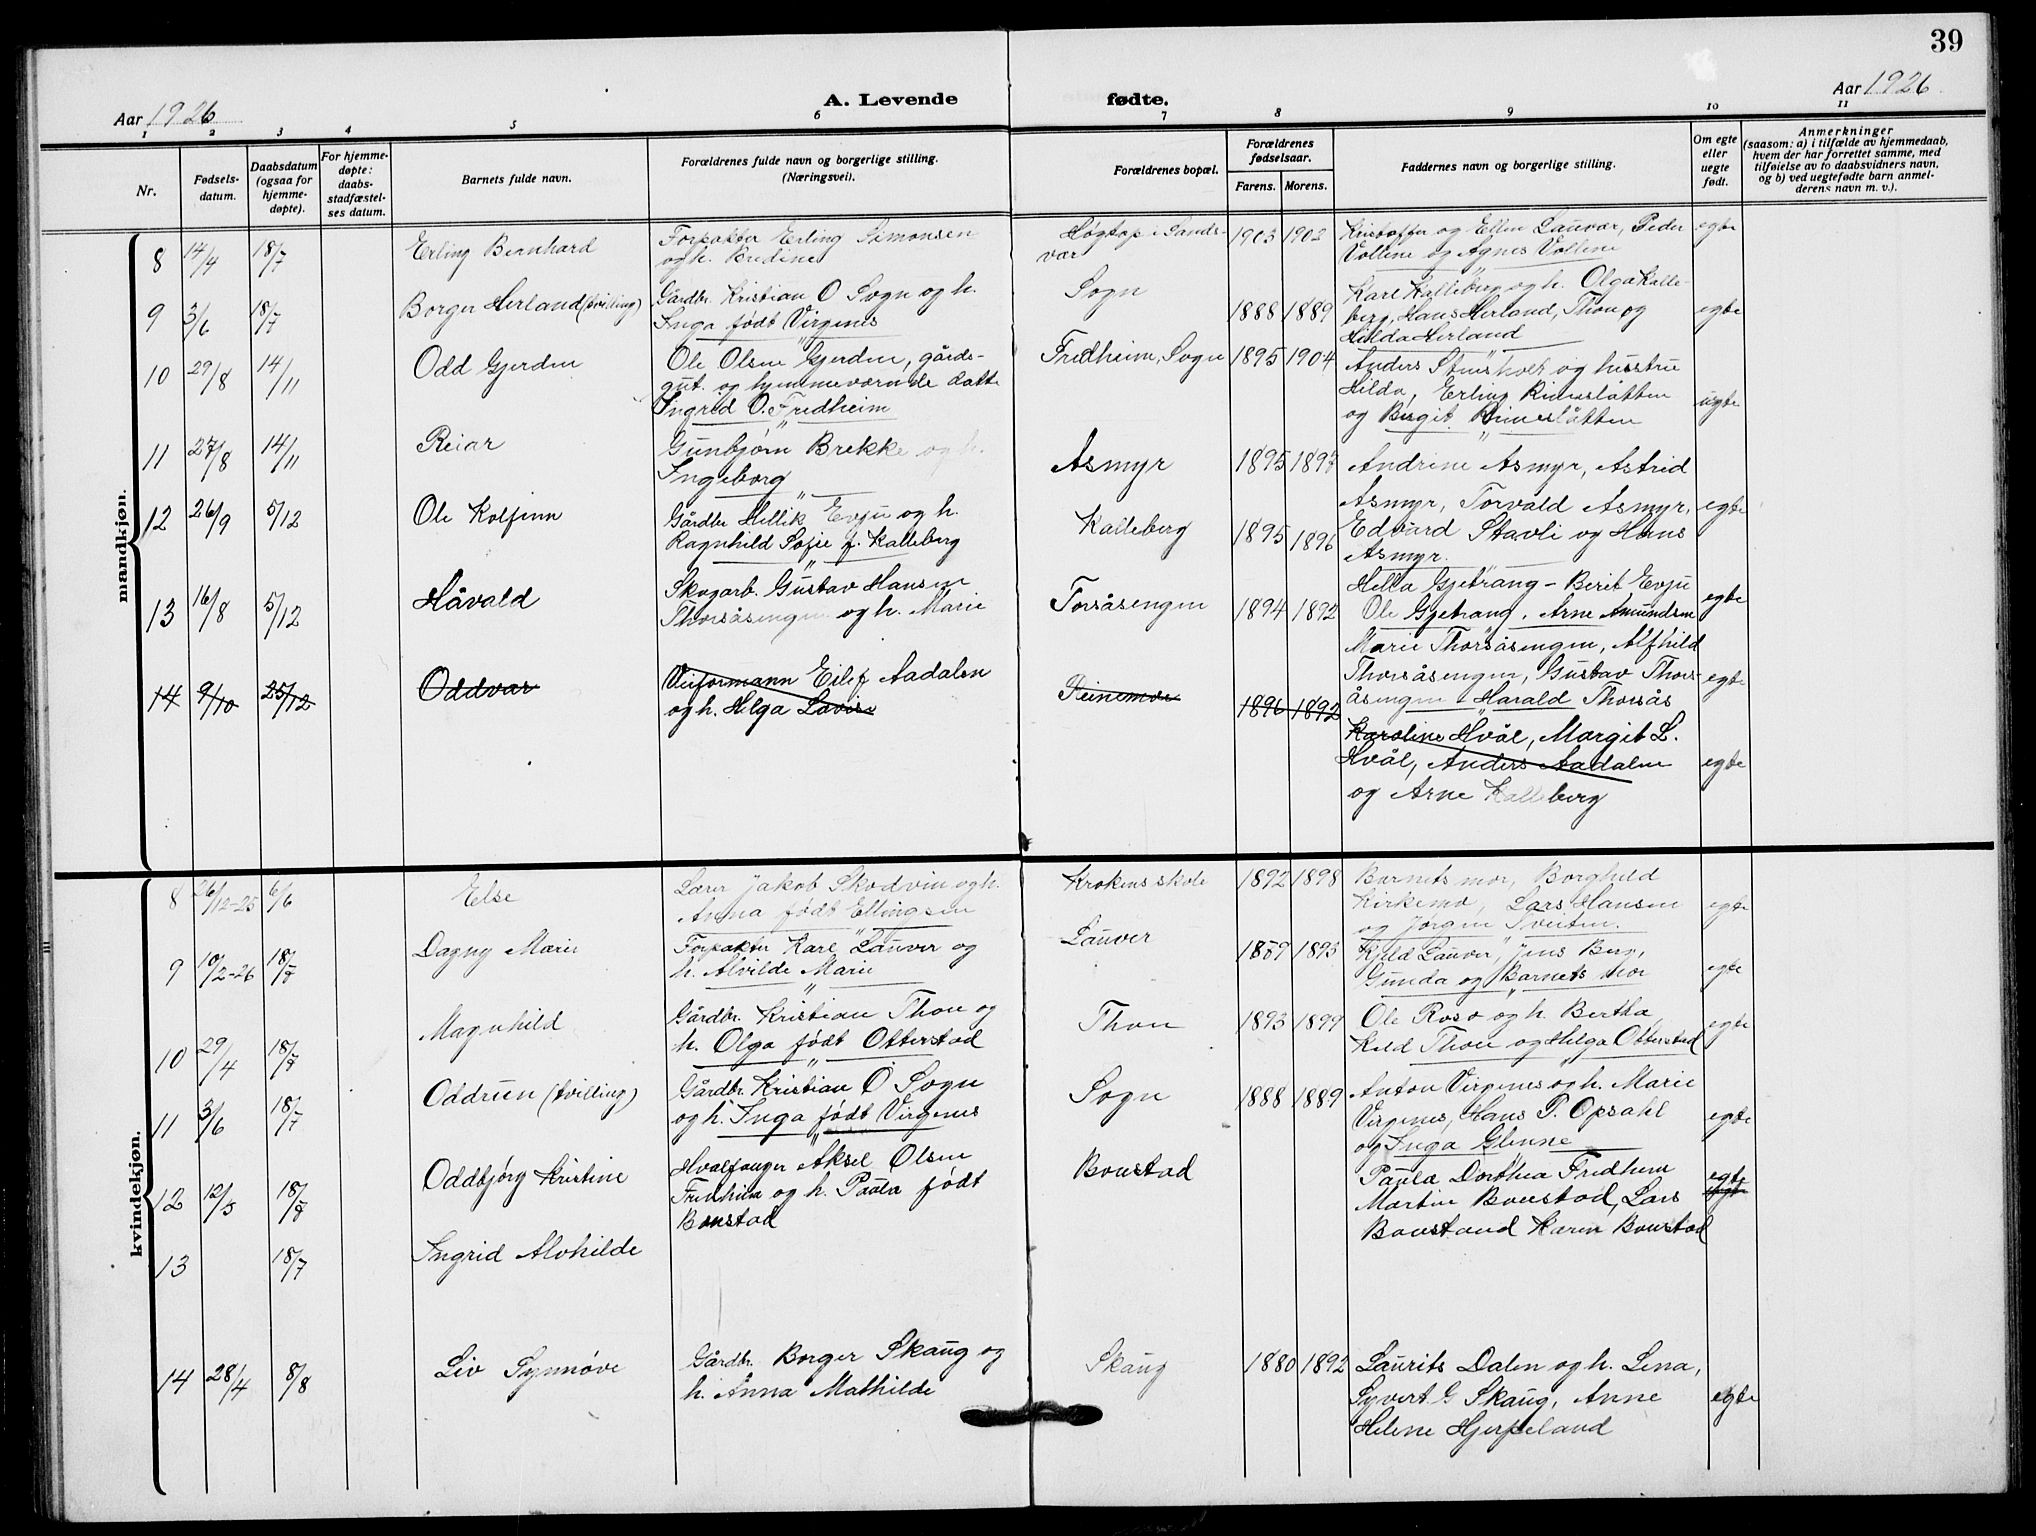 39
Aar 1926
A. Levende fødte.
Aar 1926
1 2 3 4 5 6 7 8 9 10 11
Nr.
Fødsels-
datum.
Daabsdatum
(ogsaa for
hjemme-
døpte).
For hjemme-
døpte:
daabs-
stadfæstel-
ses datum.
Barnets fulde navn.
Forældrenes fulde navn og borgerlige stilling.
(Næringsvei).
Forældrenes bopæl.
Forældrenes
fødselsaar.
Farens. Morens.
Faddernes navn og borgerlige stilling.
Om egte
eller
uegte
født.
Anmerkninger
(saasom: a) i tilfælde av hjemmedaab,
hvem der har forrettet samme, med
tilføielse av to daabsvidners navn,
og b) ved uegtefødte barn anmel-
derens navn m. v.).
mandkjøn.
8 14/4 18/7 Erling Bernhard
Forpakter Erling Simonsen
og h. Bredine
Høgtop i Sands-
vær
1903 1902
Kristoffer og Ellen Lauvær, Peder
Vollene og Agnes Vollene
egte
9 3/6 18/7 Borger Herland (tvilling)
Gårdbr. Kristian O Sogn og h.
Inga født Virgenes
Sogn
1888 1889
Karl Kalleberg og h. Olga Kalle-
berg, Hans Herland, Thou og
Hilda Herland
egte
10 29/8 14/11 Odd Gjerden
Ole Olsen Gjerden, gårds-
gut. og hjemmeværende datter
Ingrid O. Fredheim
Fredheim, Sogn
1895 1904
Anders Stensholt og hustru
Hilda, Erling Rimeslåtten
og Birgit Rimeslåtten
uegte
11 27/8 14/11 Reiar
Gunbjørn Brekke og h.
Ingeborg
Asmyr
1895 1897
Andrine Asmyr, Astrid
Asmyr, Torvald Asmyr,
Edvard Stavli og Hans
Asmyr.
egte
12 26/9 5/12 Ole Kolfinn
Gårdbr Hellik Evju og h.
Ragnhild Sofie f. Kalleberg
Kalleberg
1895 1896
Hella Gjetrang - Berit Evju
Ole Gjetrang, Arne Amundsen
egte
13 16/8 5/12 Håvald
Skogarb. Gustav Hansen
Thorsåsengen og h. Marie
Torsåsengen
1894 1892
Marie Thorsåsengen, Alfhild
Thorsåsengen, Gustav Thors-
åsengen Harald Thorsås
egte
14 9/10 25/12 Oddvar
Veiformann Eilef Aadalen
og h. Helga Lovise
1896 1892
Karoline Hvål, Margit L.
Hvål, Anders Aadalen
og Arne Kalleberg
egte
kvindekjøn.
8 26/12-25 6/6 Else
Lærer Jakob Skodvin og h.
Anna født Ellingsen
Krokens skole
1892 1898
Barnets mor, Borghild
Kirkemo, Lars Hansen
og Jørgen Sveiten.
egte
9 10/2-26 18/7 Dagny Marie
Forpakter Karl Lauver og
h. Alvilde Marie
Lauver
1889 1893
Kjeld Lauver, Jens Berg,
Gunda og Barnets mor
egte
10 29/4 18/7 Magnhild
Gårdbr. Kristian Thou og
h. Olga født Otterstad
Thou
1893 1899
Ole Roso og h. Bertha
Keld Thou og Helga Otterstad
egte
11 3/6 18/7 Oddrun (tvilling)
Gårdbr. Kristian O Sogn
og h. Inga født Virgenes
Sogn
1888 1889
Anton Virgenes og h. Marie
Virgenes, Hans P. Opsahl
og Inga Glenne
egte
12 12/5 18/7 Oddbjørg Kristine
Hvalfanger Aksel Olsen
Fredheim og h. Paula født
Boustad
Boustad
Paula Dorthea Fredheim
Martin Boustad, Lars
Boustand Karen Boustad
egte
13 18/7 Ingrid Alvhilde
14 28/4 8/8 Liv Synnøve
Gårdbr. Borger Skaug og
h. Anna Mathilde
Skaug
1880 1892
Laurits Dalen og h. Lena,
Syvert G Skaug, Anne
Helene Hjerpeland
egte